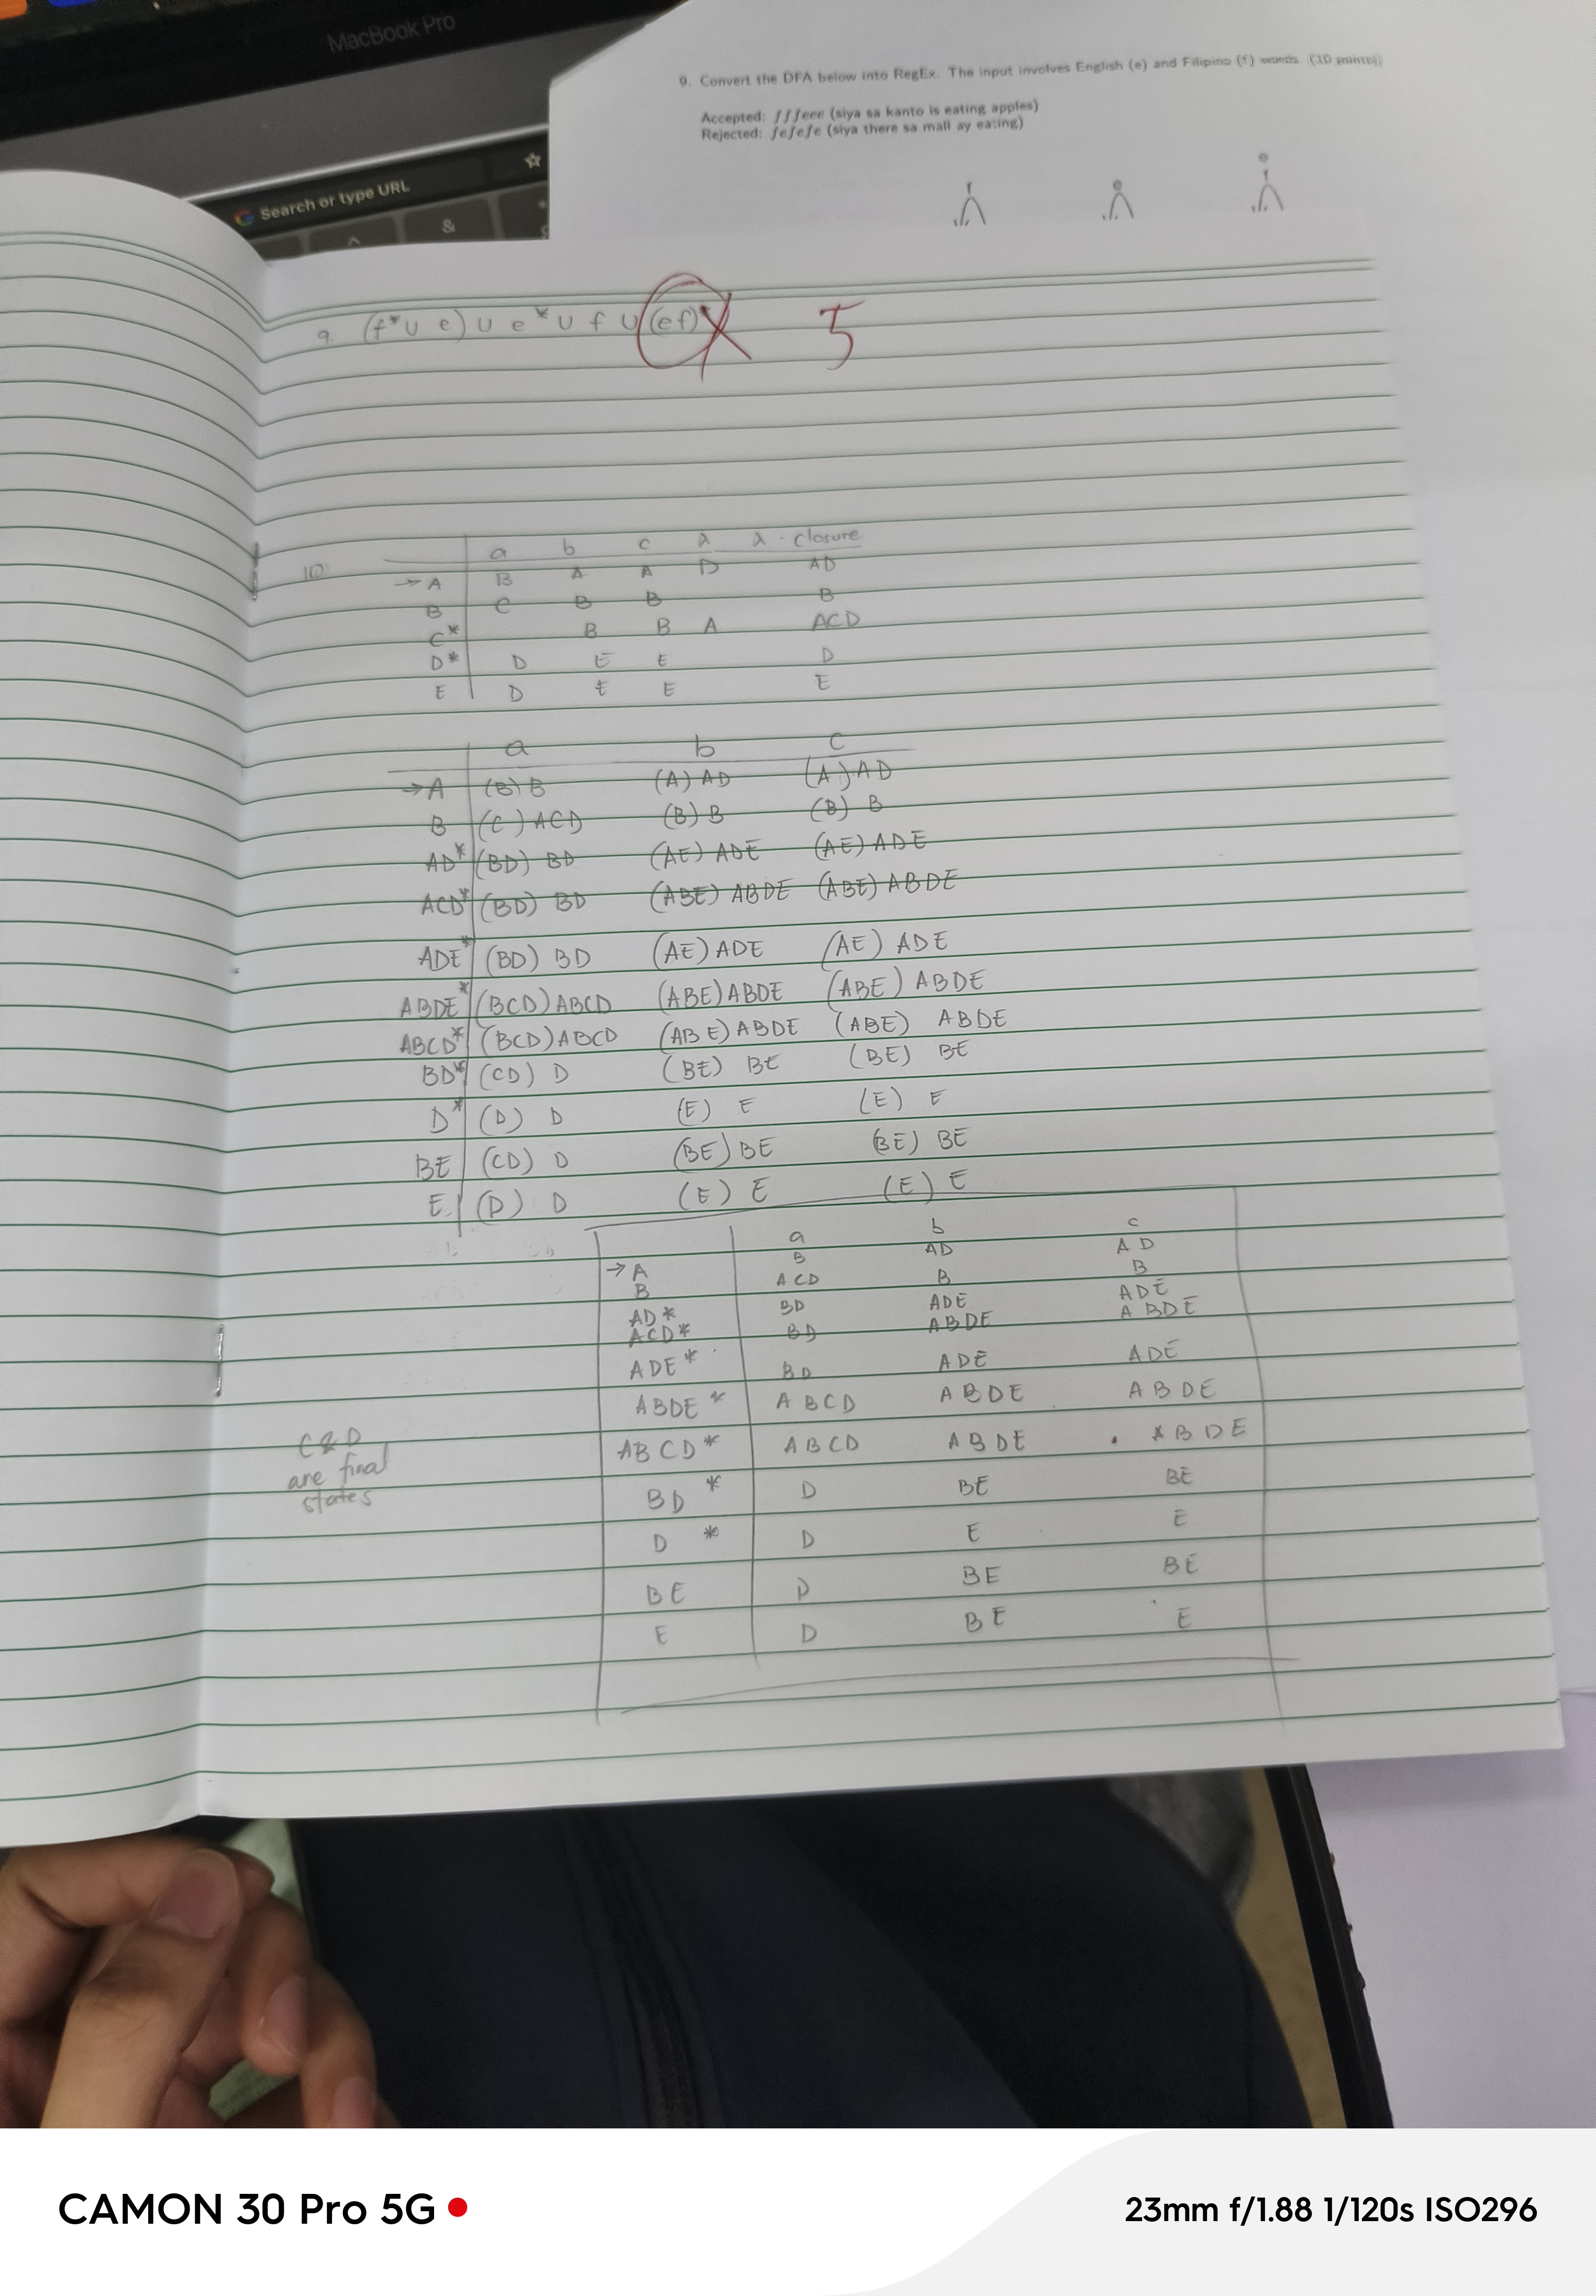 MacBook Pro
Search or type URL
&
9. Convert the DFA below into RegEx. The input involves English (e) and Filipino (f) words. (10 points)
Accepted: fffeee (siya sa kanto is eating apples)
Rejected: fefefe (siya there sa mall ay eating)
f e e
f
9. (f*∪ e) ∪ e*∪ f ∪ (ef)* 5
10 a b c λ λ - closure
→ A B A A D AD
B C B B B
C* B B A ACD
D* D E E D
E D E E E
a b c
→A (B) B (A) AD (A) AD
B (C) ACD (B) B (B) B
AD* (BD) BD (AE) ADE (AE) ADE
ACD* (BD) BD (ABE) ABDE (ABE) ABDE
ADE* (BD) BD (AE) ADE (AE) ADE
ABDE* (BCD) ABCD (ABE) ABDE (ABE) ABDE
ABCD* (BCD) ABCD (ABE) ABDE (ABE) ABDE
BD* (CD) D (BE) BE (BE) BE
D* (D) D (E) E (E) E
BE (CD) D (BE) BE (BE) BE
E (D) D (E) E (E) E
a b c
→ A B AD AD
B ACD B B
AD* BD ADE ADE
ACD* BD ABDE ABDE
ADE* BD ADE ADE
ABDE* ABCD ABDE ABDE
ABCD* ABCD ABDE ABDE
BD* D BE BE
D* D E E
BE D BE BE
E D BE E
C & D
are final
states
CAMON 30 Pro 5G
23mm f/1.88 1/120s ISO296